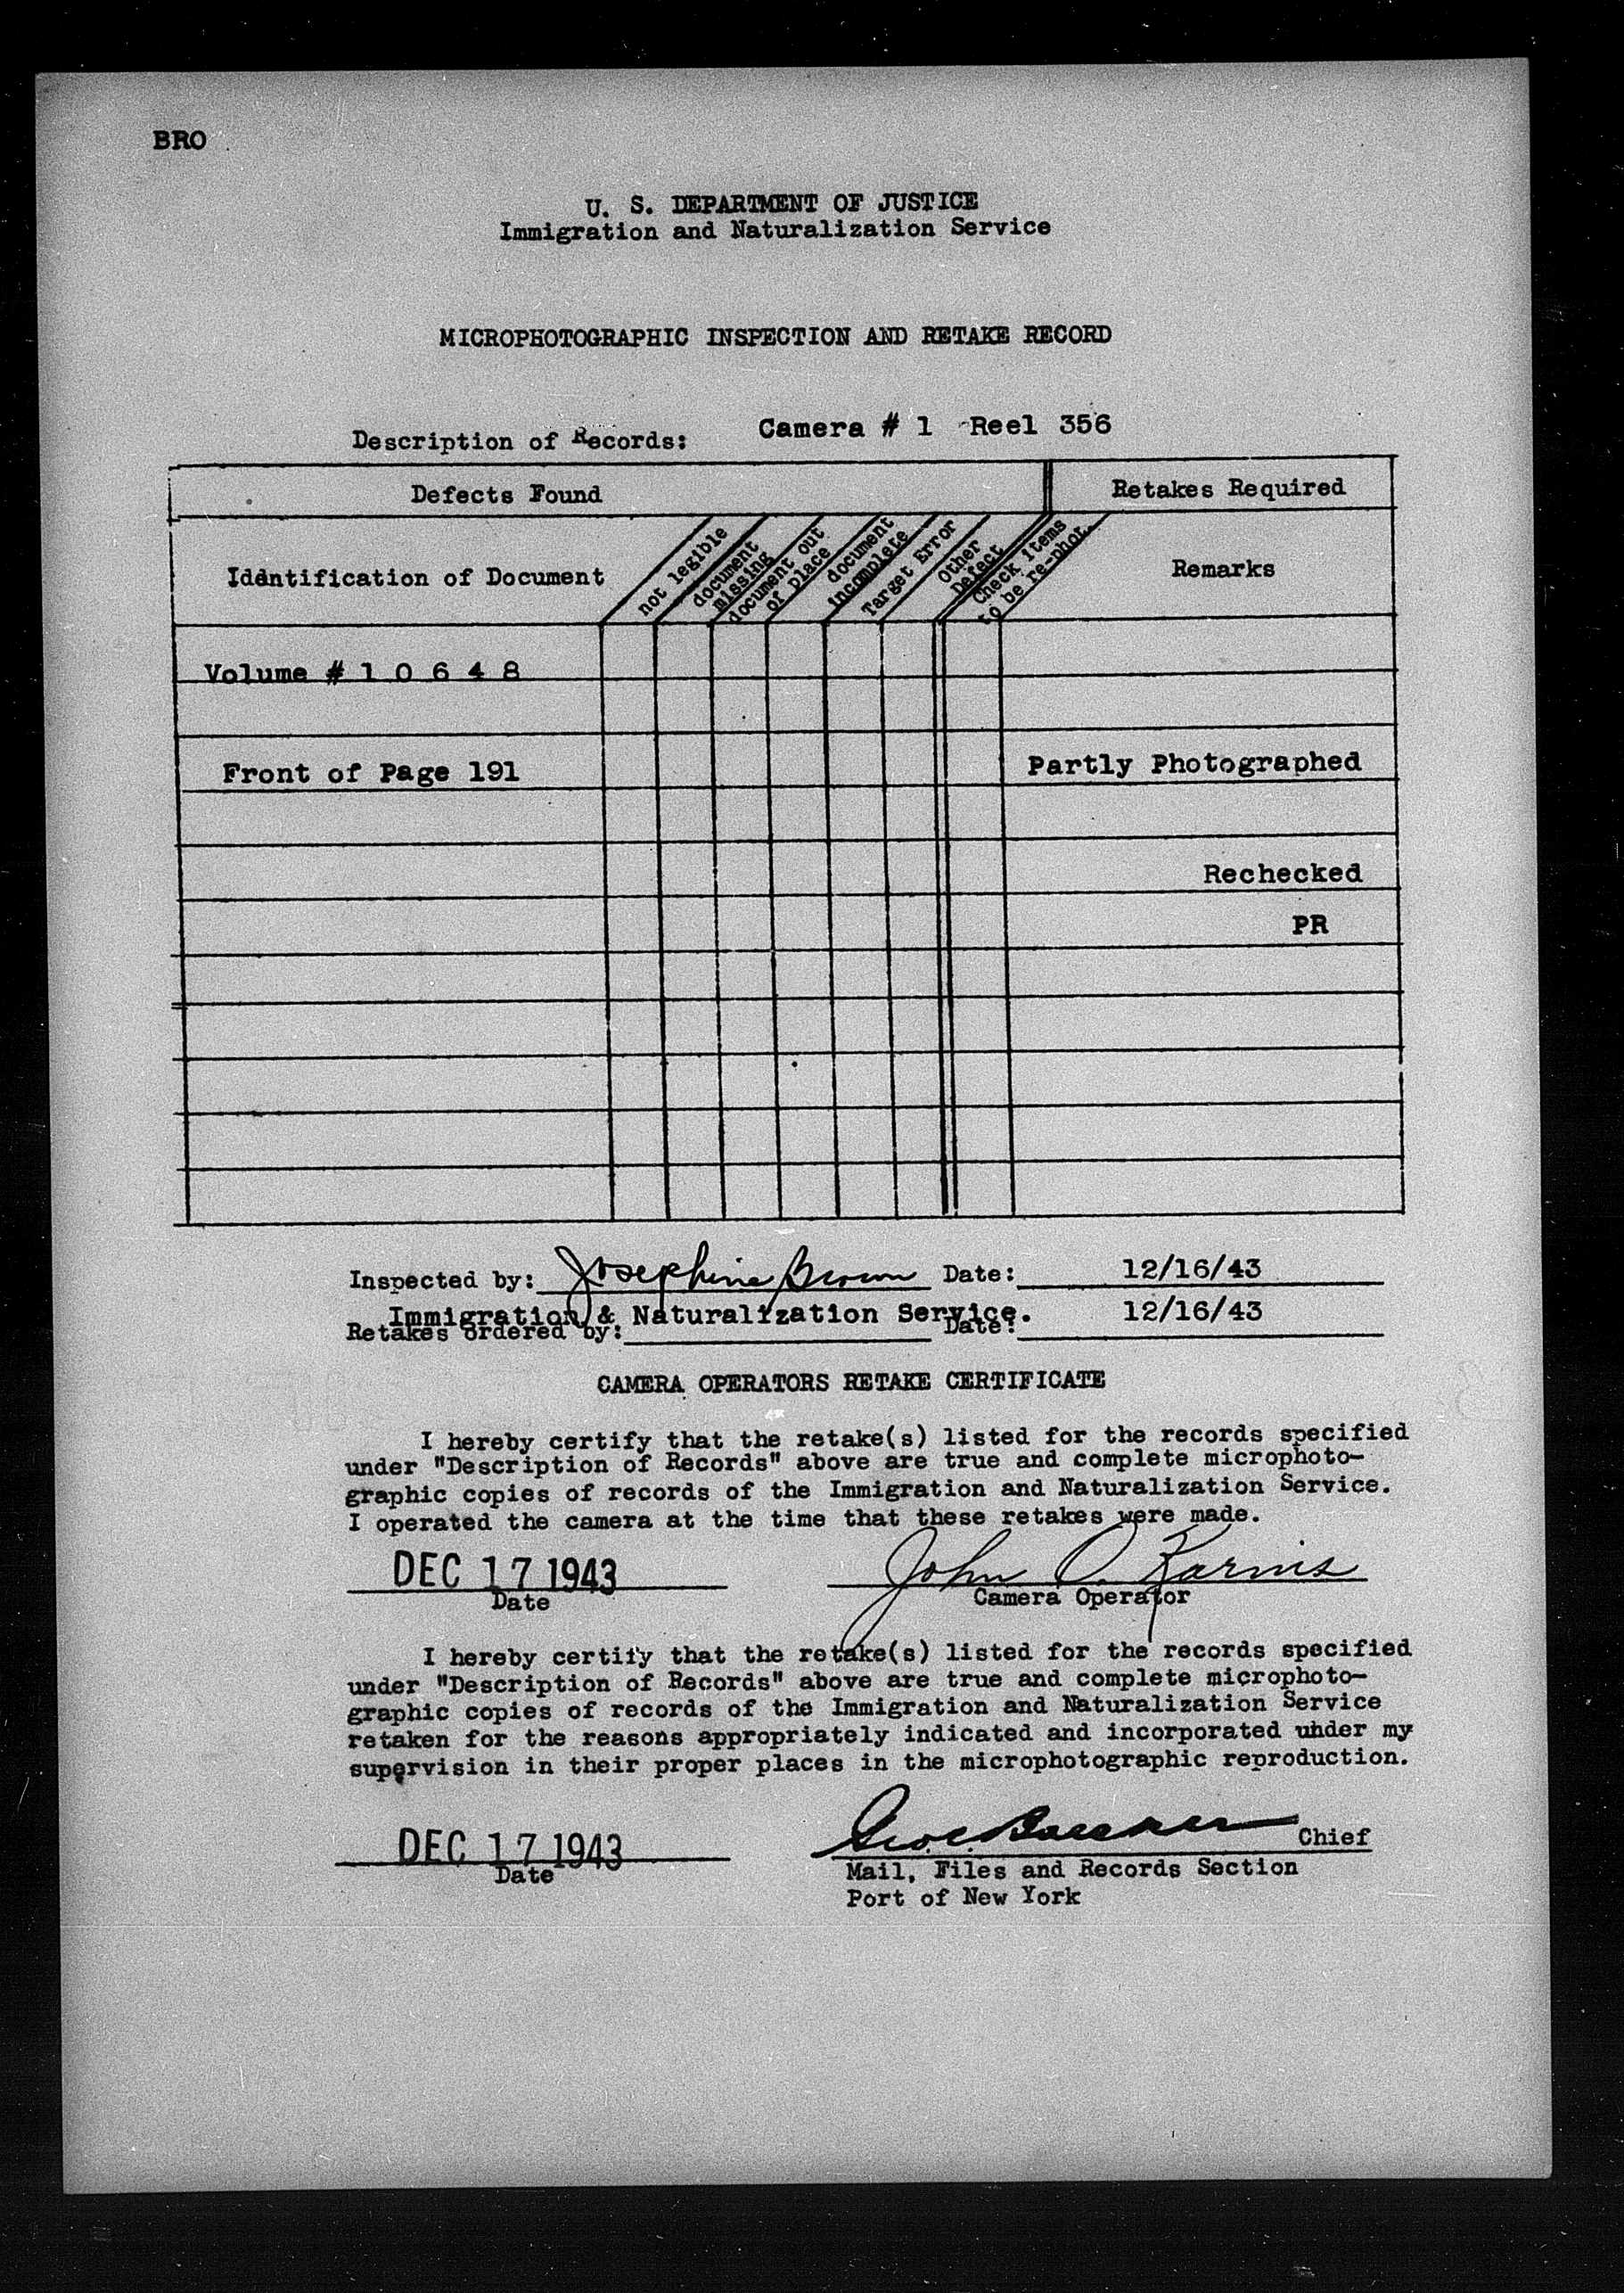 BRO
U. S. DEPARTMENT OF JUSTICE
Immigration and Naturalization Service
MICROPHOTOGRAPHIC INSPECTION AND RETAKE RECORD
Description of Records: Camera # 1 Reel 356
Defects Found Retakes Required
Identification of Document
not legible
document missing
document out of place
document incomplete
Target Error
Other Defect
Check items to be re-phot.
Remarks
Volume # 1 0 6 4 8
Front of Page 191 Partly Photographed
Rechecked
PR
Inspected by: Josephine Brown Date: 12/16/43
Immigration & Naturalization Service. 12/16/43
Retakes ordered by: Date:
CAMERA OPERATORS RETAKE CERTIFICATE
I hereby certify that the retake(s) listed for the records specified
under "Description of Records" above are true and complete microphoto-
graphic copies of records of the Immigration and Naturalization Service.
I operated the camera at the time that these retakes were made.
DEC 17 1943 John O. Karins
Date Camera Operator
I hereby certify that the retake(s) listed for the records specified
under "Description of Records" above are true and complete microphoto-
graphic copies of records of the Immigration and Naturalization Service
retaken for the reasons appropriately indicated and incorporated under my
supervision in their proper places in the microphotographic reproduction.
DEC 17 1943 Chief
Date Mail, Files and Records Section
Port of New York